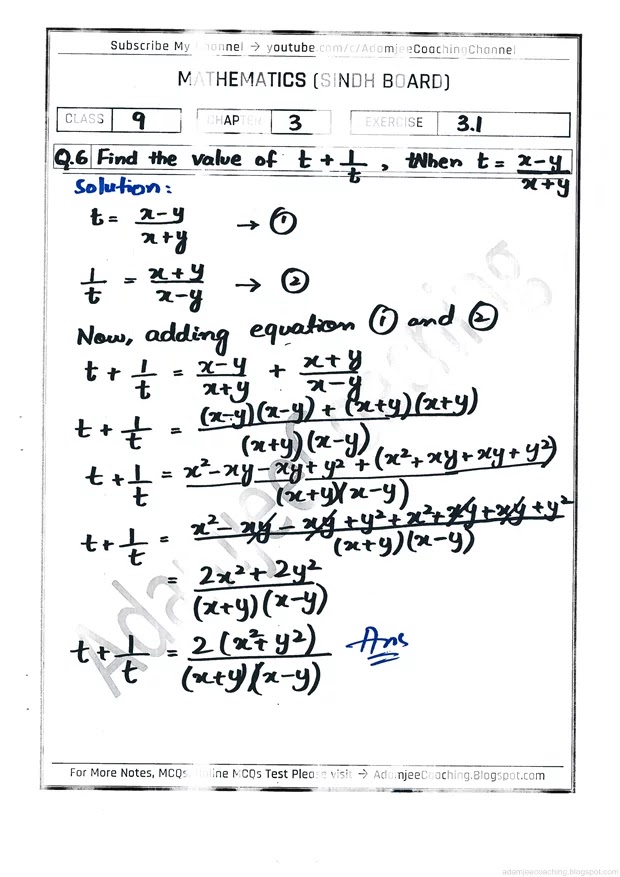 Subscribe My Channel → youtube.com/c/AdamjeeCoachingChannel
MATHEMATICS (SINDH BOARD)
CLASS 9 CHAPTER 3 EXERCISE 3.1
Q.6 Find the value of t + 1/t , When t = x-y/x+y
Solution:
t = x-y/x+y → ①
1/t = x+y/x-y → ②
Now, adding equation ① and ②
t + 1/t = x-y/x+y + x+y/x-y
t + 1/t = (x-y)(x-y) + (x+y)(x+y)/(x+y)(x-y)
t + 1/t = x²-xy-xy+y²+(x²+xy+xy+y²)/(x+y)(x-y)
t + 1/t = x²-xy-xy+y²+x²+xy+xy+y²/(x+y)(x-y)
= 2x²+2y²/(x+y)(x-y)
t + 1/t = 2(x²+y²)/(x+y)(x-y) Ans
AdamjeeCoaching
For More Notes, MCQs, Online MCQs Test Please visit → AdamjeeCoaching.Blogspot.com
adamjeecoaching.blogspot.com